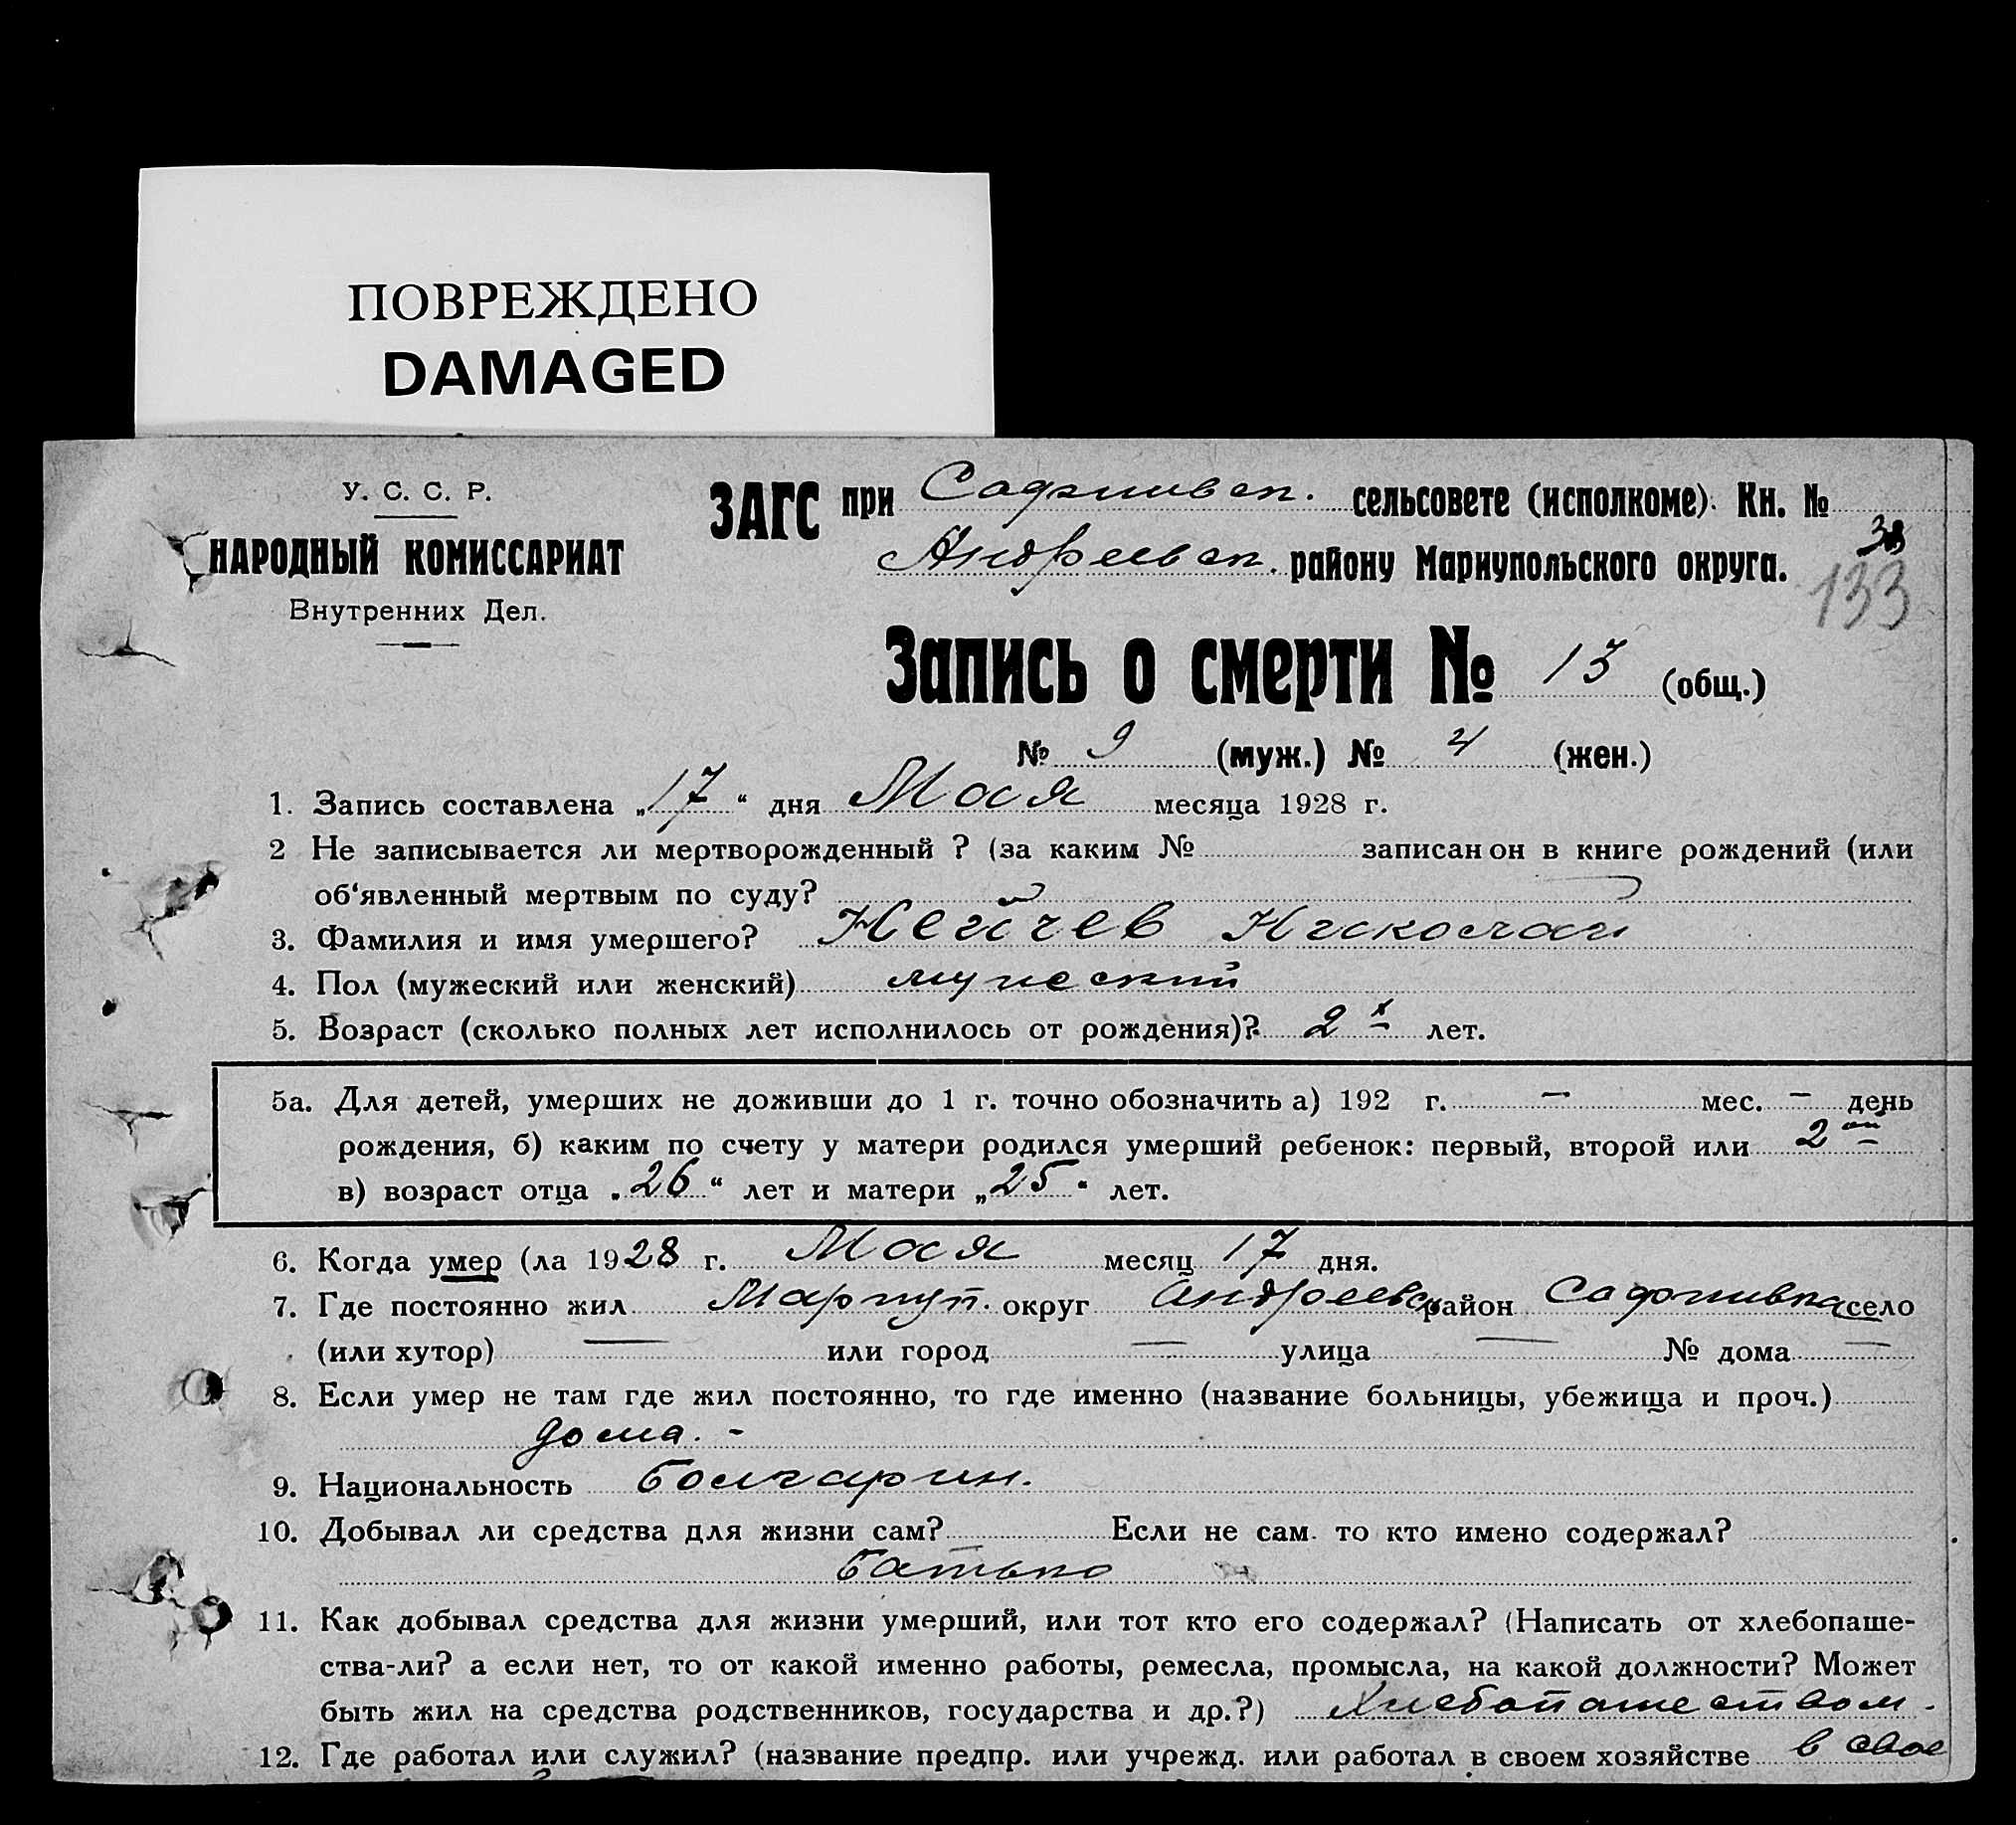 ПОВРЕЖДЕНО
DAMAGED
У. С. С. Р.
НАРОДНЫЙ КОМИССАРИАТ
Внутренних Дел.
ЗАГС при сельсовете (исполкоме). Кн. №
Андреевск. району Мариупольского округа.
133
Запись о смерти № 13 (общ.)
№ 9 (муж.) № 4 (жен.)
1. Запись составлена „17“ дня Мая месяца 1928 г.
2 Не записывается ли мертворожденный ? (за каким № записан он в книге рождений (или
об‘явленный мертвым по суду?
3. Фамилия и имя умершего? Нейчев Николай
4. Пол (мужеский или женский) мужеский
5. Возраст (сколько полных лет исполнилось от рождения)? 2 х лет.
5а. Для детей, умерших не доживши до 1 г. точно обозначить а) 192 г. — мес. — день
рождения, б) каким по счету у матери родился умерший ребенок: первый, второй или 2 ой
в) возраст отца „26“ лет и матери „25“ лет.
6. Когда умер (ла 1928 г. Мая месяц 17 дня.
7. Где постоянно жил Мариуп. округ Андреевск район село
(или хутор) — или город — улица — № дома —
8. Если умер не там где жил постоянно, то где именно (название больницы, убежища и проч.)
дома. -
9. Национальность Болгарин.
10. Добывал ли средства для жизни сам? Если не сам то кто имено содержал?
батько
11. Как добывал средства для жизни умерший, или тот кто его содержал? (Написать от хлебопаше-
ства-ли? а если нет, то от какой именно работы, ремесла, промысла, на какой должности? Может
быть жил на средства родственников, государства и др.?) Хлебопашеством.
12. Где работал или служил? (название предпр. или учрежд. или работал в своем хозяйстве в свое